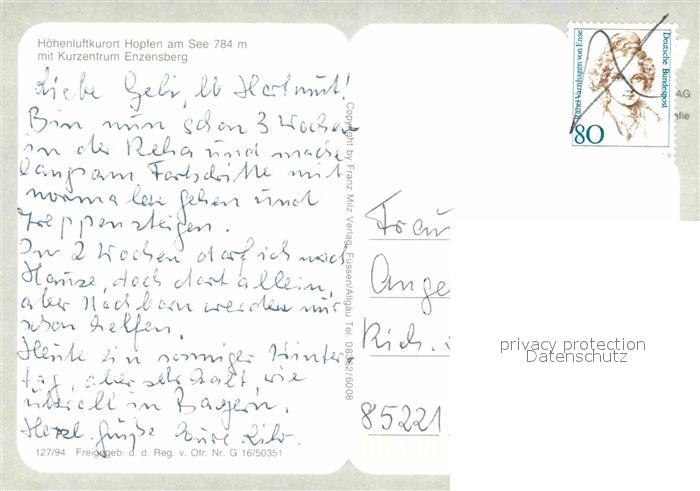 Höhenluftkurort Hopfen am See 784 m
mit Kurzentrum Enzensberg
Liebe Gebi, lb Hartmut!
Bin nun schon 3 Wochen
in der Reha und mache
langsam Fortschritte mit
normalen Gehen und
Treppensteigen.
In 2 Wochen darf ich nach
Hause, doch dort allein,
aber Nachbarn werden mir
schon helfen.
Heute ein sonniger Winter-
tag, aber sehr kalt, wie
überall in Bayern.
Herzl. Grüße Eure
127/94 Freigegeb. d. d. Reg. v. Ofr. Nr. G 16/50351
Copyright by Franz Milz Verlag, Füssen/Allgäu Tel. 08362/6008
Deutsche Bundespost
Rahel Varnhagen von Ense
80
AG
fie
Frau
Ange
Rich.
85221
privacy protection
Datenschutz